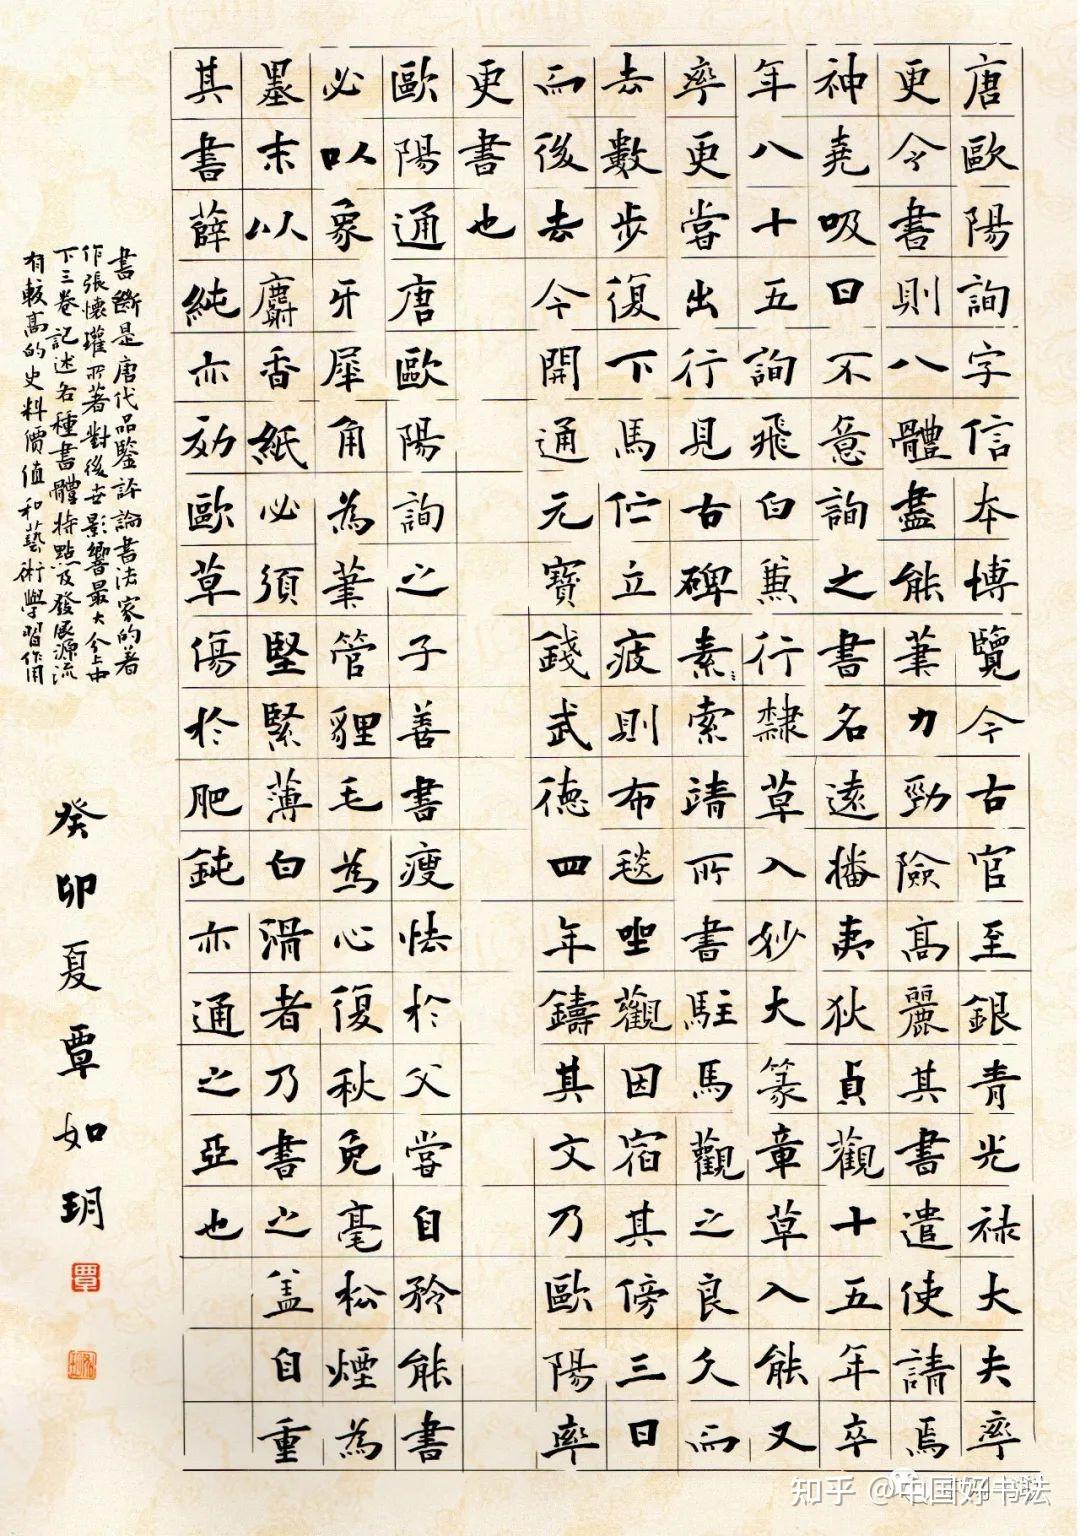 唐歐陽詢字信本博覽今古官至銀青光祿大夫率
更令書則八體盡能筆力勁險高麗其書遣使請焉
神堯吸曰不意詢之書名遠播夷狄貞觀十五年卒
年八十五詢飛白蕉行隸草入妙大篆章草入能又
率更嘗出行見古碑素〻索靖所書駐馬觀之良久而
去數步復下馬伫立疲則布毯坐觀因宿其傍三日
而後去今開通元寶錢武德四年鑄其文乃歐陽率
更書也
歐陽通唐歐陽詢之子善書瘦怯於父嘗自矜能書
必以象牙犀角為筆管貍毛為心復秋兔毫松煙為
墨末以麝香紙必須堅緊薄白滑者乃書之蓋自重
其書薛純亦効歐草傷於肥鈍亦通之亞也
書斷是唐代品鑒評論書法家的著
作張懷瓘所著對後世影響最大分上中
下三卷記述各種書體特點及發展源流
有較高的史料價值和藝術學習作用
癸卯夏覃如玥
覃
知乎 @中国好书法